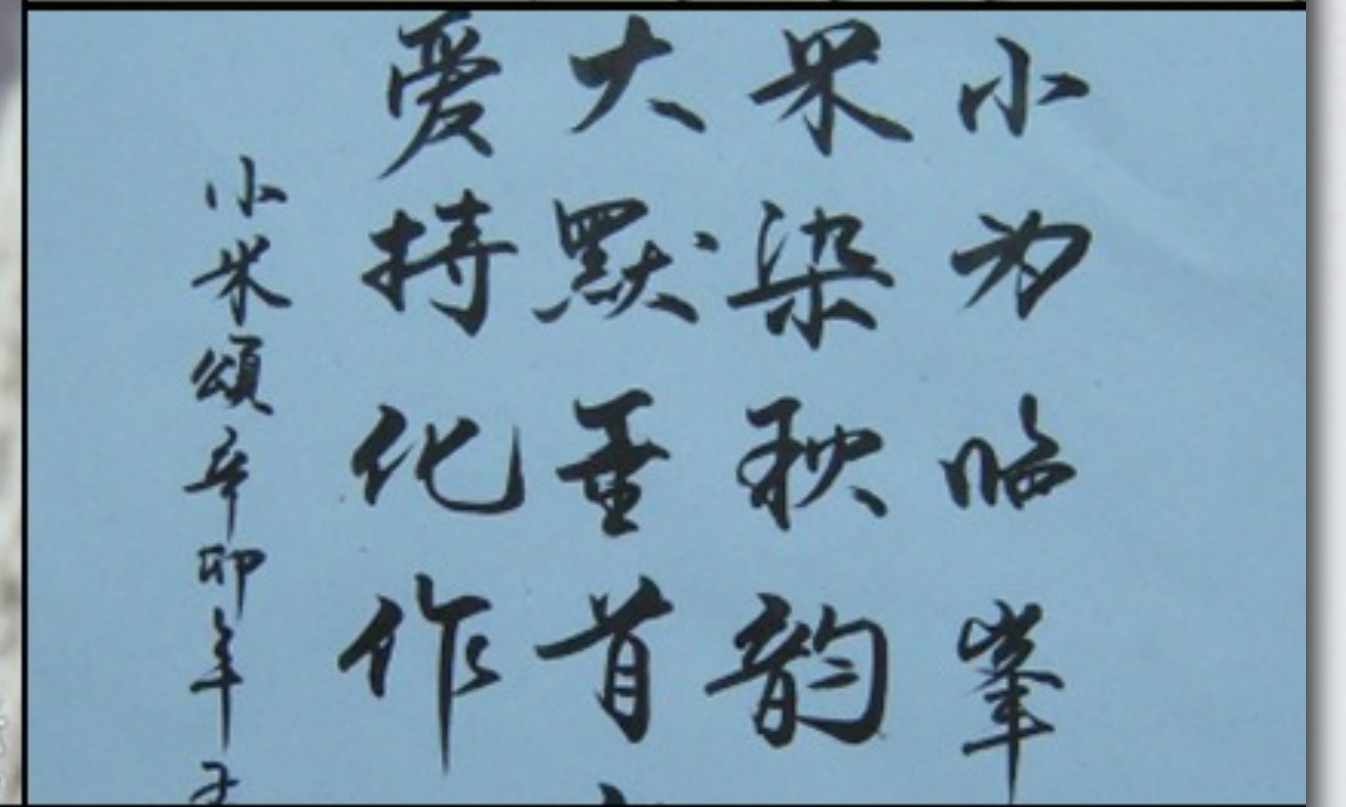 小为临峯
米染秋韵
大默重首
爱持化作
小米頌辛卯年